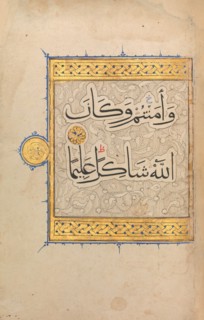 وَاٰمَنْتُمْ وَكَانَ
اللّٰهُ شَاكِرًا عَلِيمًا